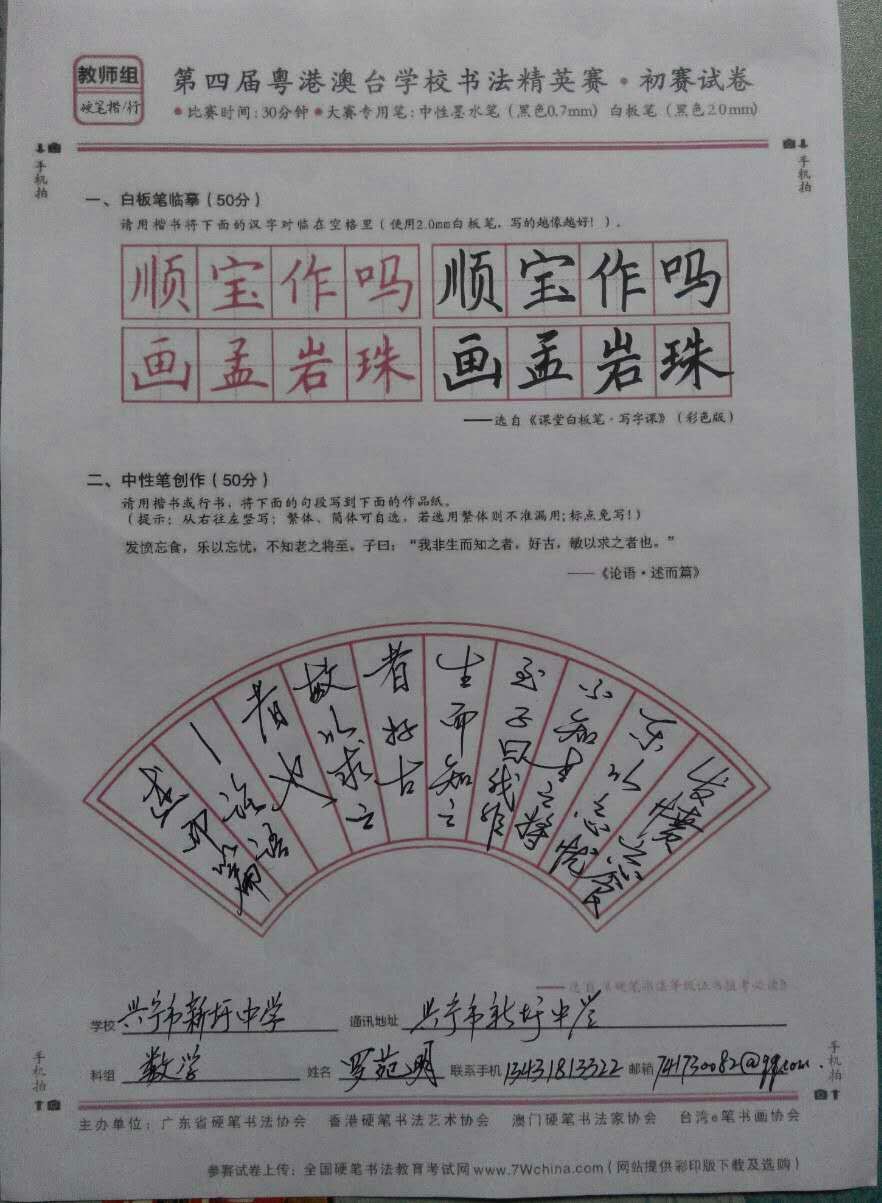 教师组
硬笔楷/行
第四届粤港澳台学校书法精英赛·初赛试卷
●比赛时间:30分钟●大赛专用笔:中性墨水笔(黑色0.7mm) 白板笔(黑色2.0mm)
手机拍
手机拍
一、白板笔临摹(50分)
请用楷书将下面的汉字对临在空格里(使用2.0mm白板笔,写的越像越好!)。
顺宝作吗 顺宝作吗
画孟岩珠 画孟岩珠
——选自《课堂白板笔·写字课》(彩色版)
二、中性笔创作(50分)
请用楷书或行书,将下面的句段写到下面的作品纸。
(提示:从右往左竖写;繁体、简体可自选,若选用繁体则不准漏用;标点免写!)
发愤忘食,乐以忘忧,不知老之将至。子曰:“我非生而知之者,好古,敏以求之者也。”
——《论语·述而篇》
发愤忘食
乐以忘忧
不知老之将
至子曰我非
生而知之
者好古
敏以求之
者也
—论语
述而篇
——选自《硬笔书法等级证书报考必读》
学校 兴宁市新圩中学 通讯地址 兴宁市新圩中学
科组 数学 姓名 罗苑明 联系手机 13431813322 邮箱 741730082@qq.com.
手机拍
手机拍
主办单位:广东省硬笔书法协会 香港硬笔书法艺术协会 澳门硬笔书法家协会 台湾e笔书画协会
参赛试卷上传:全国硬笔书法教育考试网www.7Wchina.com(网站提供彩印版下载及选购)